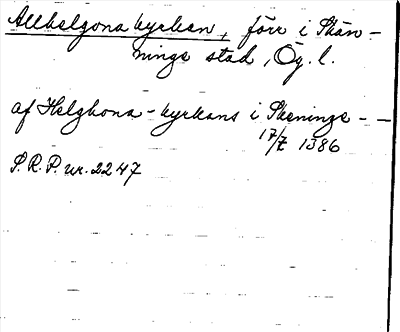 Allhelgona kyrkan, förr i Skän-
ninge stad, Ög. l.
af Helghona-kyrkans i Skeninge - -
17/7 1386
S.R.P. nr. 2247